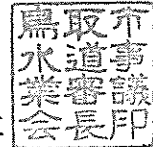 鳥取市
水道事
業審議
会長印